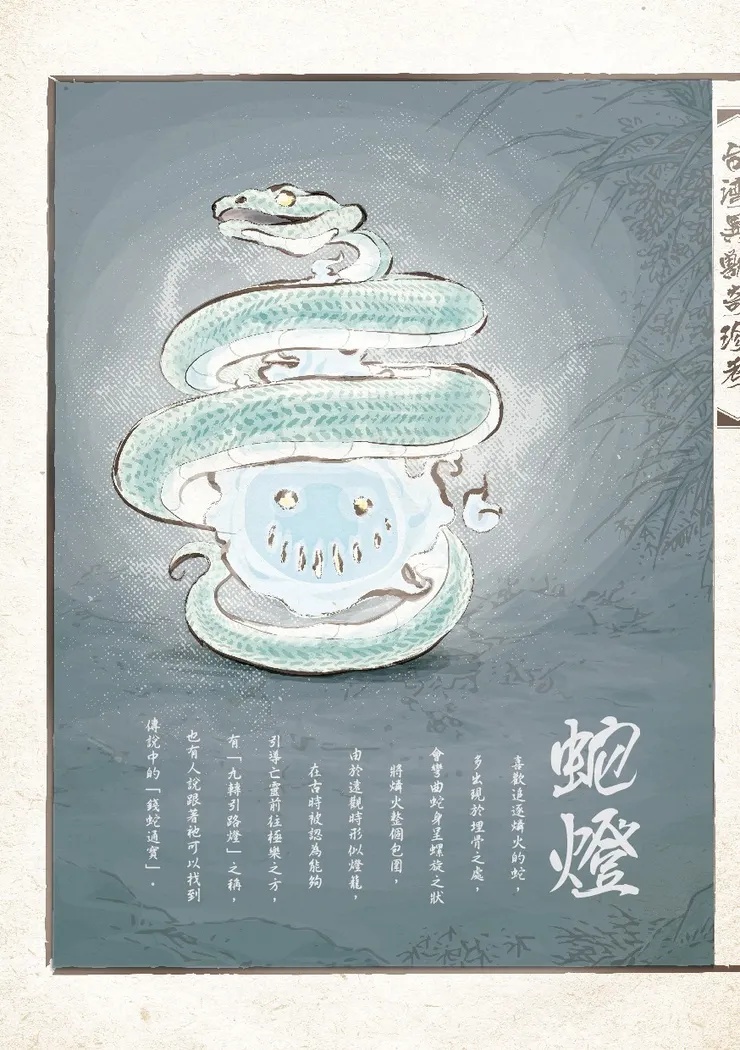 台灣異獸奇珍卷
蛇燈
喜歡追逐燐火的蛇，
多出現於埋骨之處，
會彎曲蛇身呈螺旋之狀
將燐火整個包圍，
由於遠觀時形似燈籠，
在古時被認為能夠
引導亡靈前往極樂之方，
有「九轉引路燈」之稱，
也有人說跟著祂可以找到
傳說中的「錢蛇通寶」。